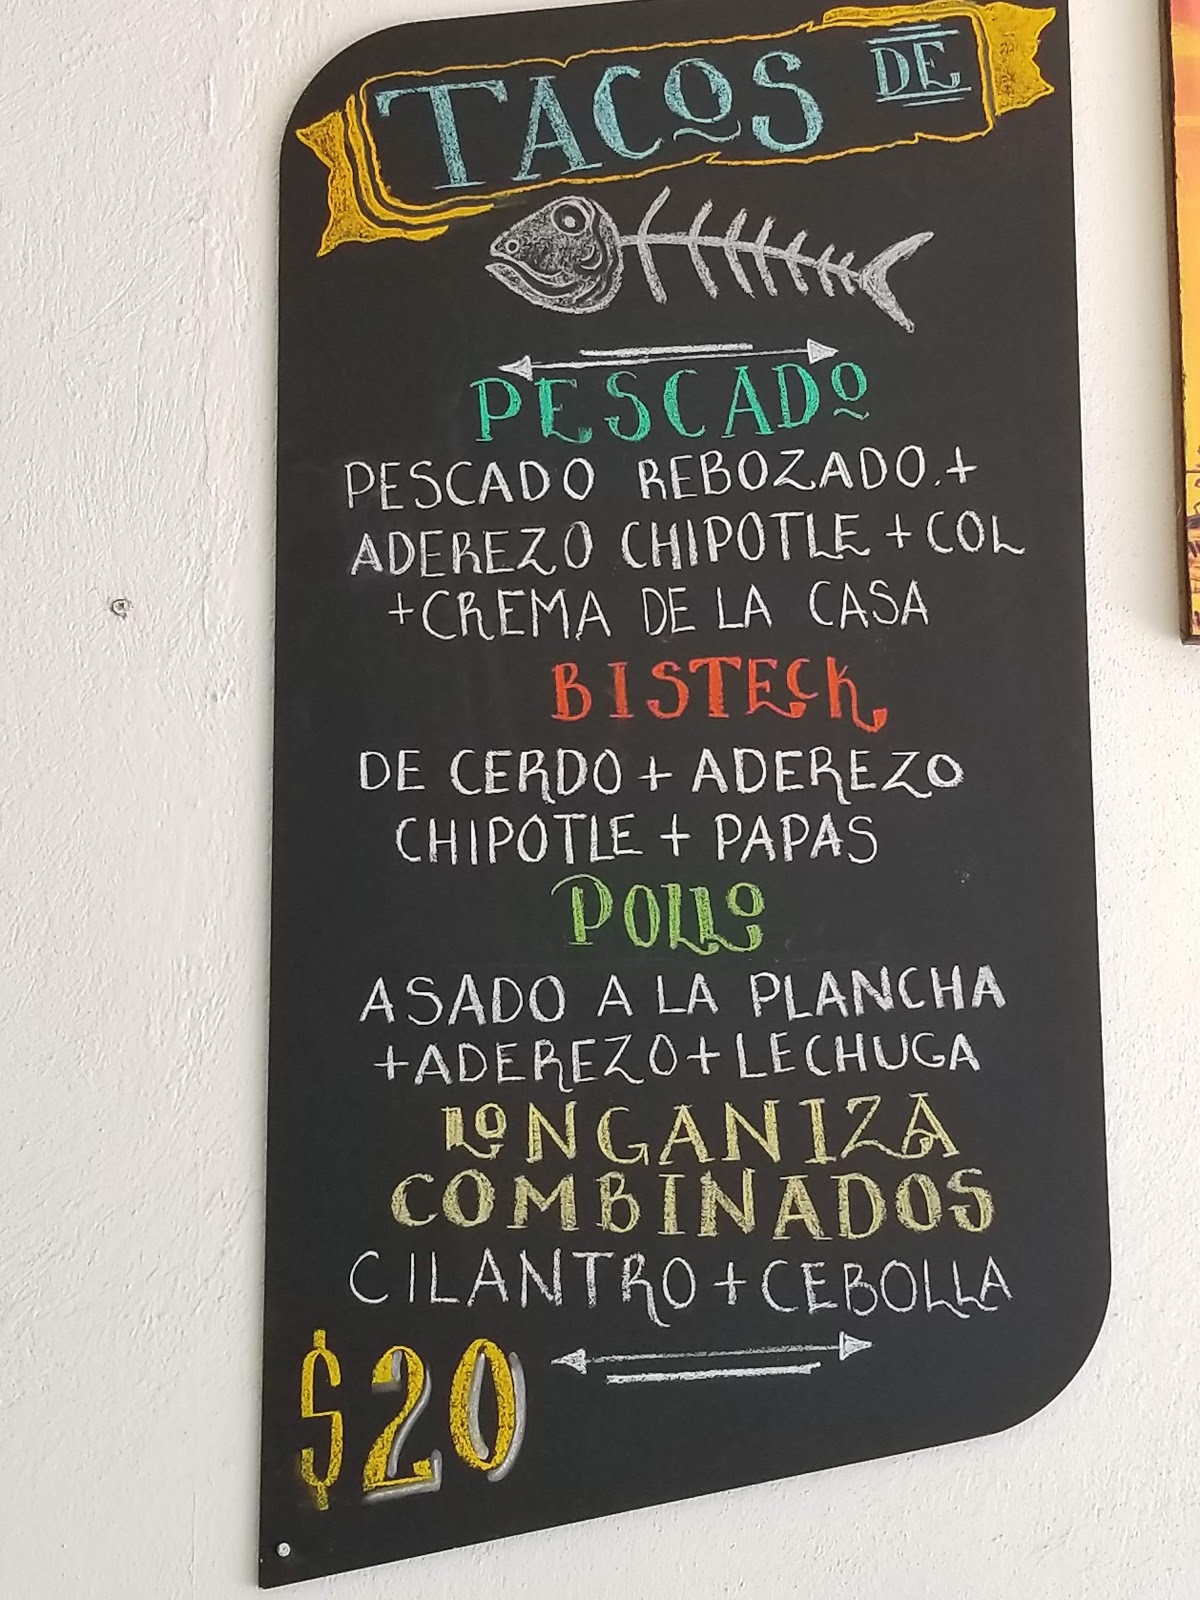 TACOS DE
PESCADO
PESCADO REBOZADO.+
ADEREZO CHIPOTLE + COL
+CREMA DE LA CASA
BISTECK
DE CERDO + ADEREZO
CHIPOTLE + PAPAS
POLLO
ASADO A LA PLANCHA
+ADEREZO+LECHUGA
LONGANIZA
COMBINADOS
CILANTRO+CEBOLLA
$20